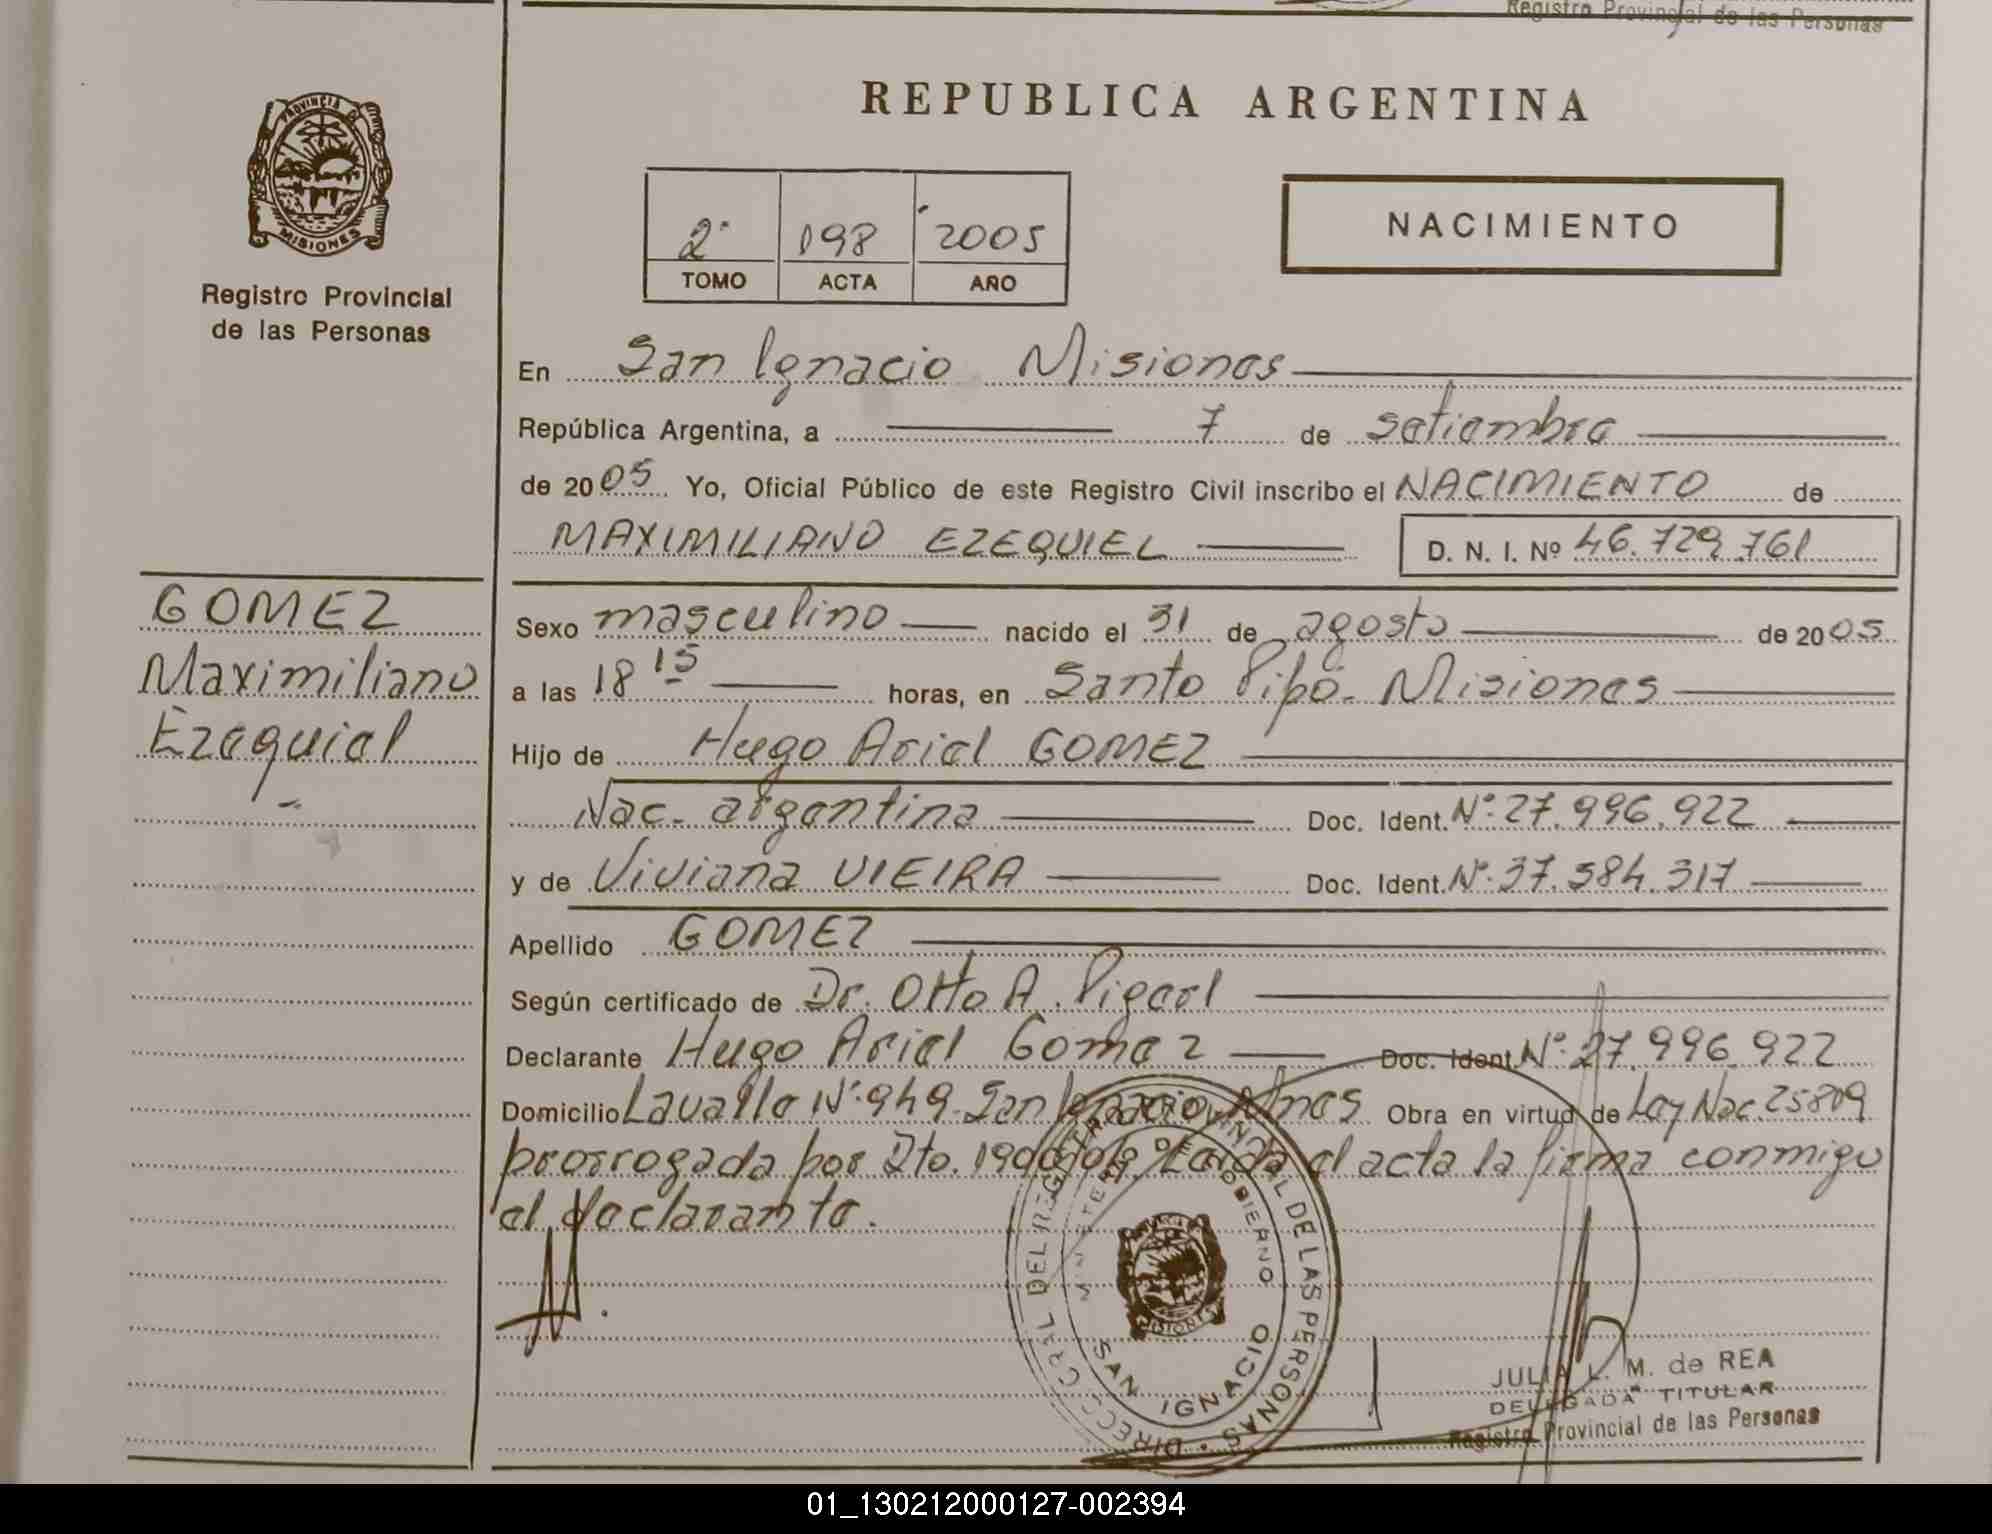 Registro Provincial de las Personas
REPUBLICA ARGENTINA
PROVINCIA DE
MISIONES
Registro Provincial
de las Personas
2º 198 2005
TOMO ACTA AÑO
NACIMIENTO
En San Ignacio Misiones
República Argentina, a 7 de setiembre
de 2005 Yo, Oficial Público de este Registro Civil inscribo el NACIMIENTO de
MAXIMILIANO EZEQUIEL D. N. I. Nº 46.729.761
GOMEZ
Maximiliano
Ezequiel
Sexo masculino nacido el 31 de agosto de 2005
a las 18 15 horas, en Santo Pipó - Misiones
Hijo de Hugo Ariel GOMEZ
Nac. argentina Doc. Ident. Nº 27.996.922
y de Viviana VIEIRA Doc. Ident. Nº 37.584.317
Apellido GOMEZ
Según certificado de Dr. Otto A.
Declarante Hugo Ariel Gomez Doc. Ident. Nº 27.996.922
Domicilio Lavalle Nº 949 San Ignacio Mnes Obra en virtud de Ley Nac. 25809
prorrogada por Dto. Leida el acta la firma conmigo
el declarante.
DIRECC. GRAL. DEL REGISTRO PROVINCIAL DE LAS PERSONAS
MINISTERIO DE GOBIERNO
MISIONES
SAN IGNACIO
JULIA L. M. de REA
DELEGADA TITULAR
Registro Provincial de las Personas
01_130212000127-002394